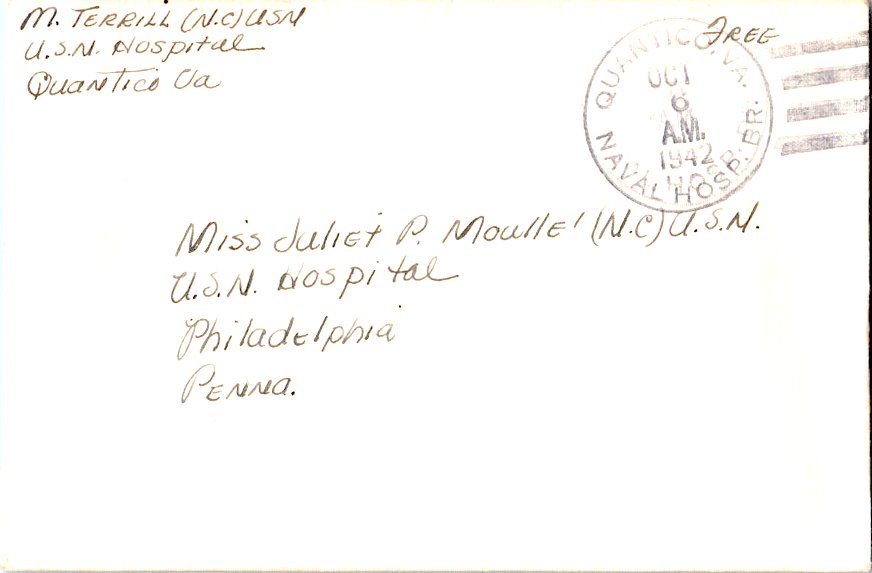 M. TERRILL (N.C) USN
U.S.N. Hospital
Quantico Va
FREE
QUANTICO, VA.
OCT
6
A.M.
1942
NAVAL HOSP. BR.
Miss Juliet P. Moulle' (N.C) U.S.N.
U.S.N. Hospital
Philadelphia
PENNA.